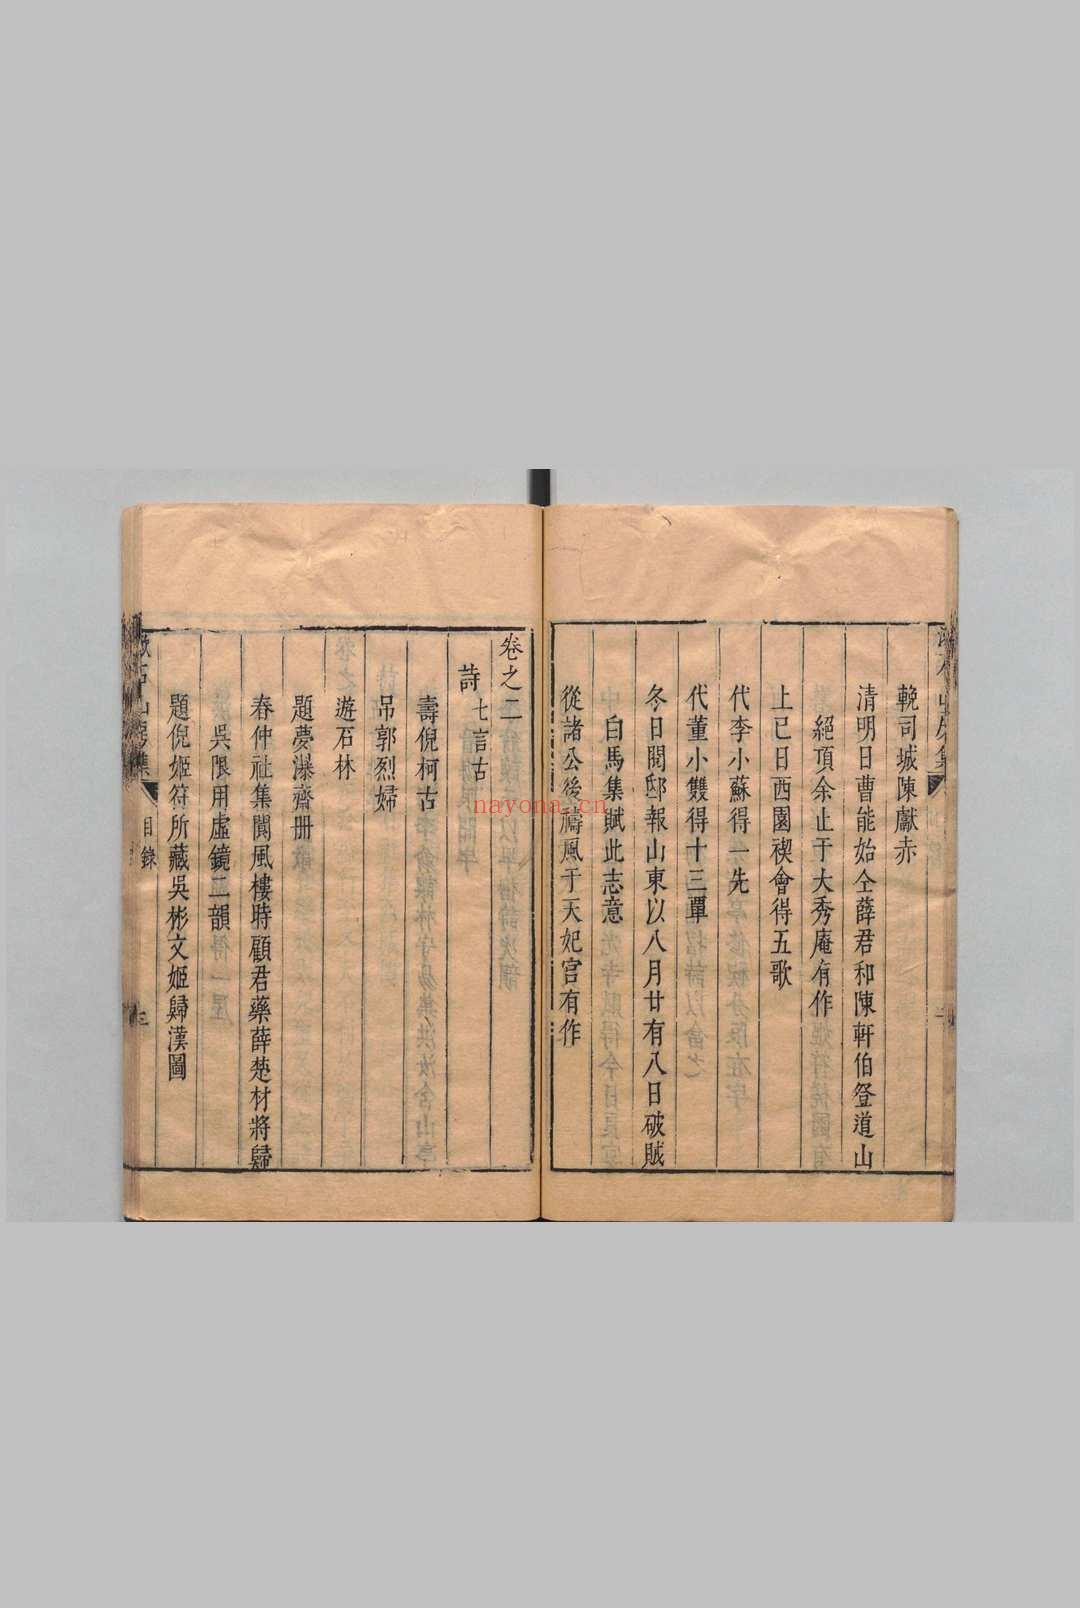 輓司城陳獻赤
清明日曹能始仝薛君和陳軒伯登道山
絕頂余止于大秀庵有作
上巳日西園禊會得五歌
代李小蘇得一先
代董小雙得十三覃
冬日閱邸報山東以八月廿有八日破賊
白馬集賦此志意
從諸公後禱風于天妃宮有作
卷之二
詩 七言古
壽倪柯古
吊郭烈婦
遊石林
題夢瀑齋册
春仲社集閬風樓時顧君藥薛楚材將歸
吳限用虛鏡二韻
題倪姬符所藏吳彬文姬歸漢圖
石山房集
目錄
三
nayona.cn